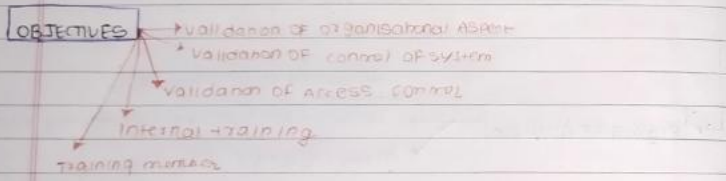 OBJECTIVES
validanon OF organisational ASPect
validanon OF control OF system
validanon OF access control
internal training
Training member